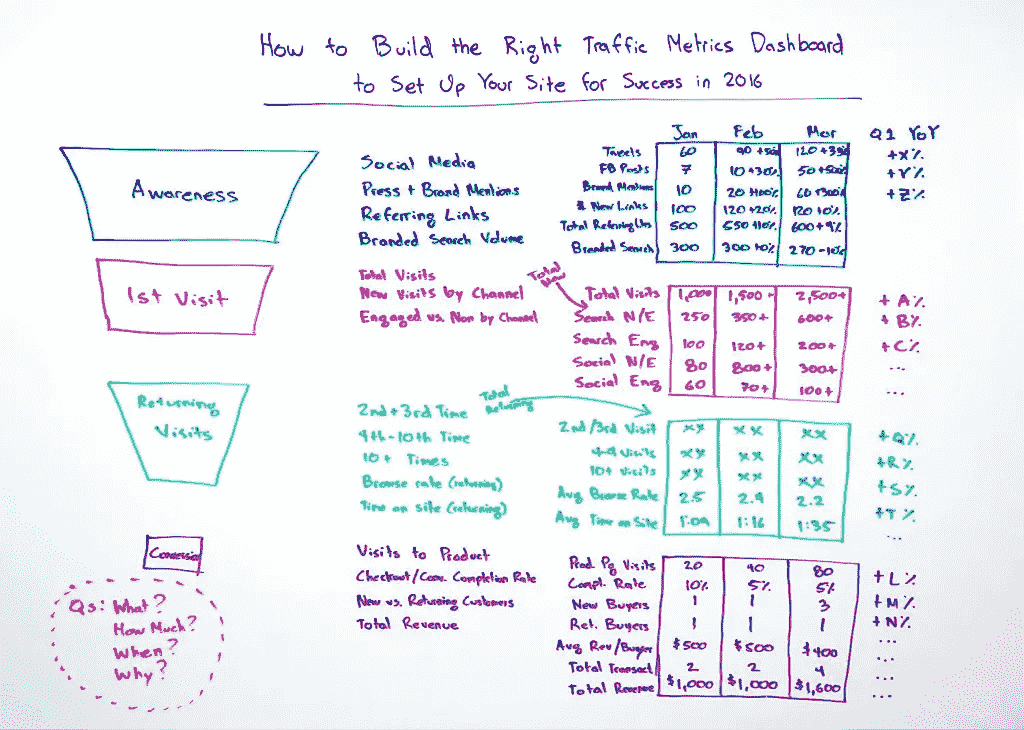 How to Build the Right Traffic Metrics Dashboard
to Set Up Your Site for Success in 2016
Jan Feb Mar Q1 YoY
Awareness
Social Media
Press + Brand Mentions
Referring Links
Branded Search Volume
Tweets 60 90 +50% 120 +33%
FB Posts 7 10 +30% 50 +500%
Brand Mentions 10 20 +100% 60 +300%
# New Links 100 120 +20% 120 +0%
Total Referring Lks 500 550 +10% 600 +9%
Branded Search 300 300 +0% 270 -10%
+X%
+Y%
+Z%
1st Visit
Total Visits
New Visits by Channel
Engaged vs. Non by Channel
Total New
Total Visits 1,000 1,500+ 2,500+
Search N/E 250 350+ 600+
Search Eng 100 120+ 200+
Social N/E 80 800+ 300+
Social Eng 60 70+ 100+
+A%
+B%
+C%
...
...
Returning
Visits
2nd + 3rd Time
4th-10th Time
10+ Times
Browse rate (returning)
Time on site (returning)
Total Returning
2nd/3rd Visit xx xx xx
4-9 Visits xx xx xx
10+ Visits xx xx xx
Avg Browse Rate 2.5 2.4 2.2
Avg Time on Site 1:09 1:16 1:35
+Q%
+R%
+S%
+T%
...
Conversion
Visits to Product
Checkout/Conv. Completion Rate
New vs. Returning Customers
Total Revenue
Prod Pg Visits 20 40 80
Compl. Rate 10% 5% 5%
New Buyers 1 1 3
Ret. Buyers 1 1 1
Avg Rev/Buyer $500 $500 $400
Total Transact 2 2 4
Total Revenue $1,000 $1,000 $1,600
+L%
+M%
+N%
...
...
...
Qs: What?
How Much?
When?
Why?